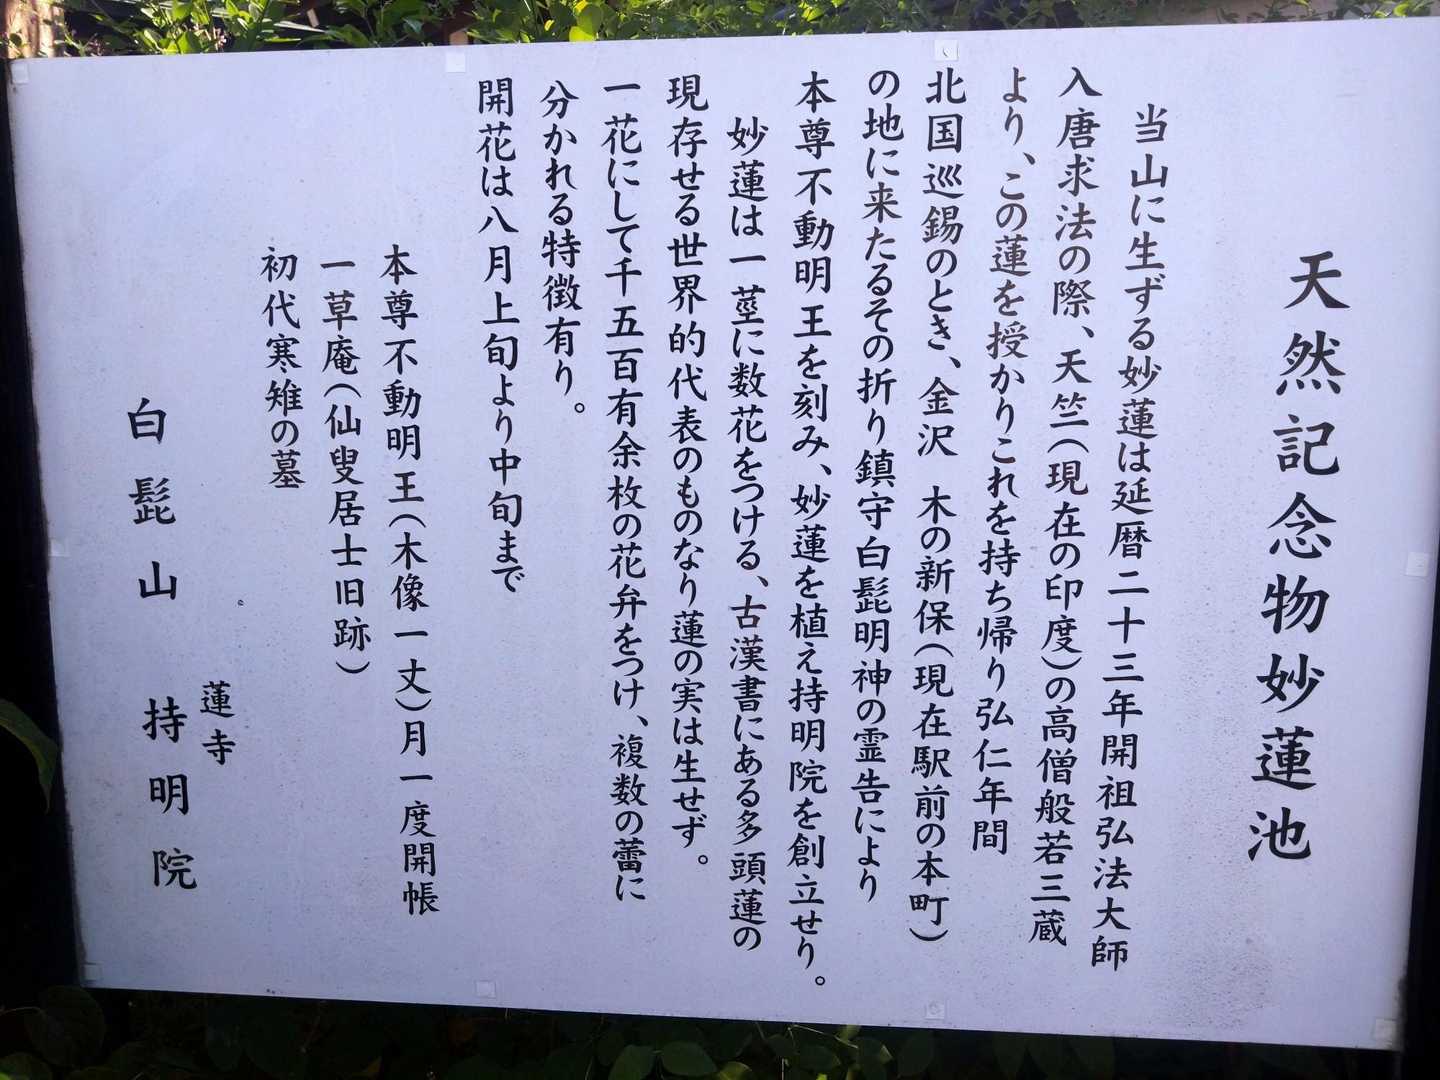 天然記念物妙蓮池
当山に生ずる妙蓮は延暦二十三年開祖弘法大師
入唐求法の際、天竺(現在の印度)の高僧般若三蔵
より、この蓮を授かりこれを持ち帰り弘仁年間
北国巡錫のとき、金沢　木の新保(現在駅前の本町)
の地に来たるその折り鎮守白髭明神の霊告により
本尊不動明王を刻み、妙蓮を植え持明院を創立せり。
妙蓮は一茎に数花をつける、古漢書にある多頭蓮の
現存せる世界的代表のものなり蓮の実は生せず。
一花にして千五百有余枚の花弁をつけ、複数の蕾に
分かれる特徴有り。
開花は八月上旬より中旬まで
本尊不動明王(木像一丈)月一度開帳
一草庵(仙叟居士旧跡)
初代寒雉の墓
蓮寺
白髭山　持明院